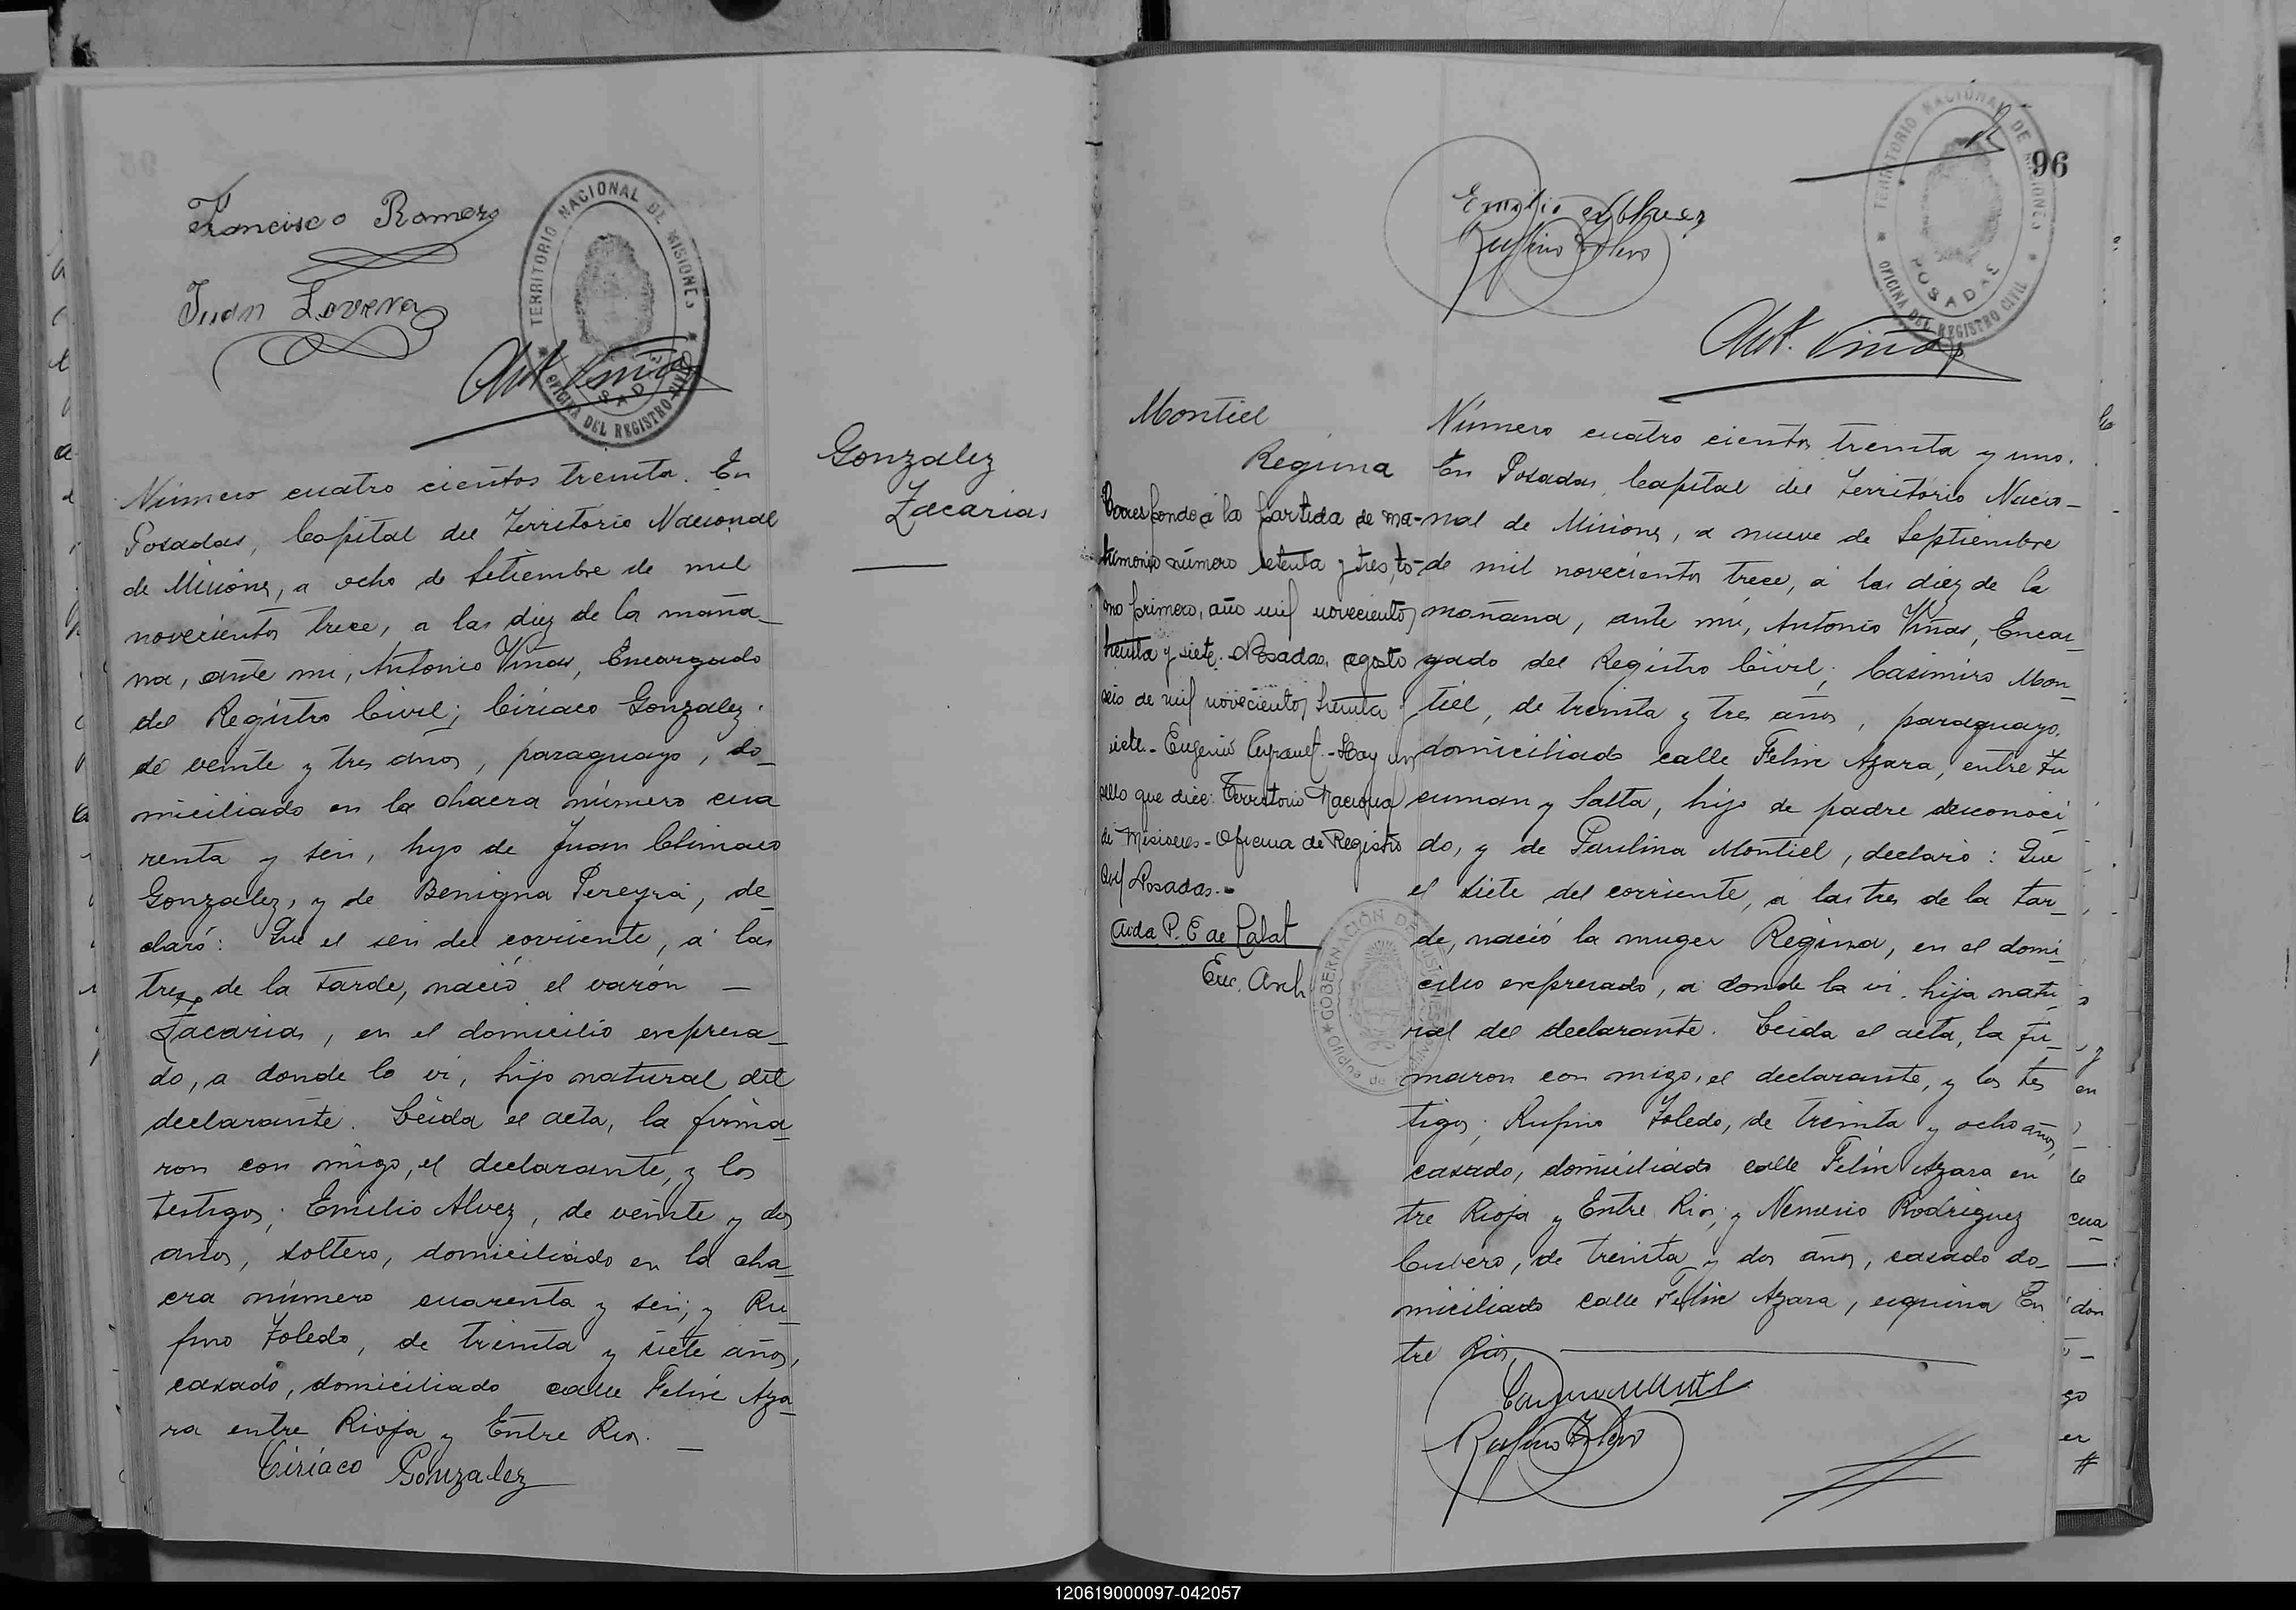 Francisco Romero
Juan Lovera
TERRITORIO NACIONAL DE MISIONES
OFICINA DEL REGISTRO CIVIL
Ant. Viñas
Número cuatro cientos treinta. En
Posadas, Capital del Territorio Nacional
de Misiones, a ocho de Setiembre de mil
novecientos trece, a las diez de la maña_
na, ante mi, Antonio Viñas, Encargado
del Registro Civil; Ciriaco Gonzalez,
de veinte y tres años, paraguayo, do_
miciliado en la chacra número cua
renta y seis, hijo de Juan Climaco
Gonzalez, y de Benigna Pereyra, de_
claró: Que el seis del corriente, a las
tres de la tarde, nació el varón —
Zacarias, en el domicilio expresa_
do, a donde lo vi, hijo natural del
declarante. Leida el acta, la firma_
ron con migo, el declarante, y los
testigos; Emilio Alvez, de veinte y dos
años, soltero, domiciliado en la cha_
cra número cuarenta y seis; y Ru_
fino Toledo, de treinta y siete años,
casado, domiciliado calle Felix Aza_
ra entre Rioja y Entre Rios. —
Ciriaco Gonzalez
Gonzalez
Zacarias
96
TERRITORIO NACIONAL DE MISIONES
POSADAS
OFICINA DEL REGISTRO CIVIL
Emilio
Rufino Toledo
Ant. Viñas
Montiel
Regina
Corresponde a la partida de ma-
trimonio número setenta y tres, to-
mo primero, año mil novecientos
treinta y siete. Posadas, agosto
seis de mil novecientos treinta y
siete.- Eugenio - Hay un
sello que dice: Territorio Nacional
de Misiones - Oficina de Registro
Civil Posadas.-
Aida P. E de Palat
Enc. Arch
GOBERNACIÓN DE MISIONES
Número cuatro cientos treinta y uno.
En Posadas, Capital del Territorio Nacio_
nal de Misiones, a nueve de Septiembre
de mil novecientos trece, a las diez de la
mañana, ante mi, Antonio Viñas, Encar_
gado del Registro Civil; Casimiro Mon_
tiel, de treinta y tres años, paraguayo,
domiciliado calle Felix Azara, entre Tu
cuman y Salta, hijo de padre desconoci_
do, y de Paulina Montiel, declaró: Que
el siete del corriente, a las tres de la tar_
de, nació la muger Regina, en el domi_
cilio expresado, a donde la vi, hija natu_
ral del declarante. Leida el acta, la fir_
maron con migo, el declarante, y los tes
tigos; Rufino Toledo, de treinta y ocho años,
casado, domiciliado calle Felix Azara en
tre Rioja y Entre Rios; y Nemesio Rodriguez
Cubero, de treinta y dos años, casado do_
miciliado calle Felix Azara, esquina En
tre Rios
Casimiro Montiel
Rufino Toledo
120619000097-042057